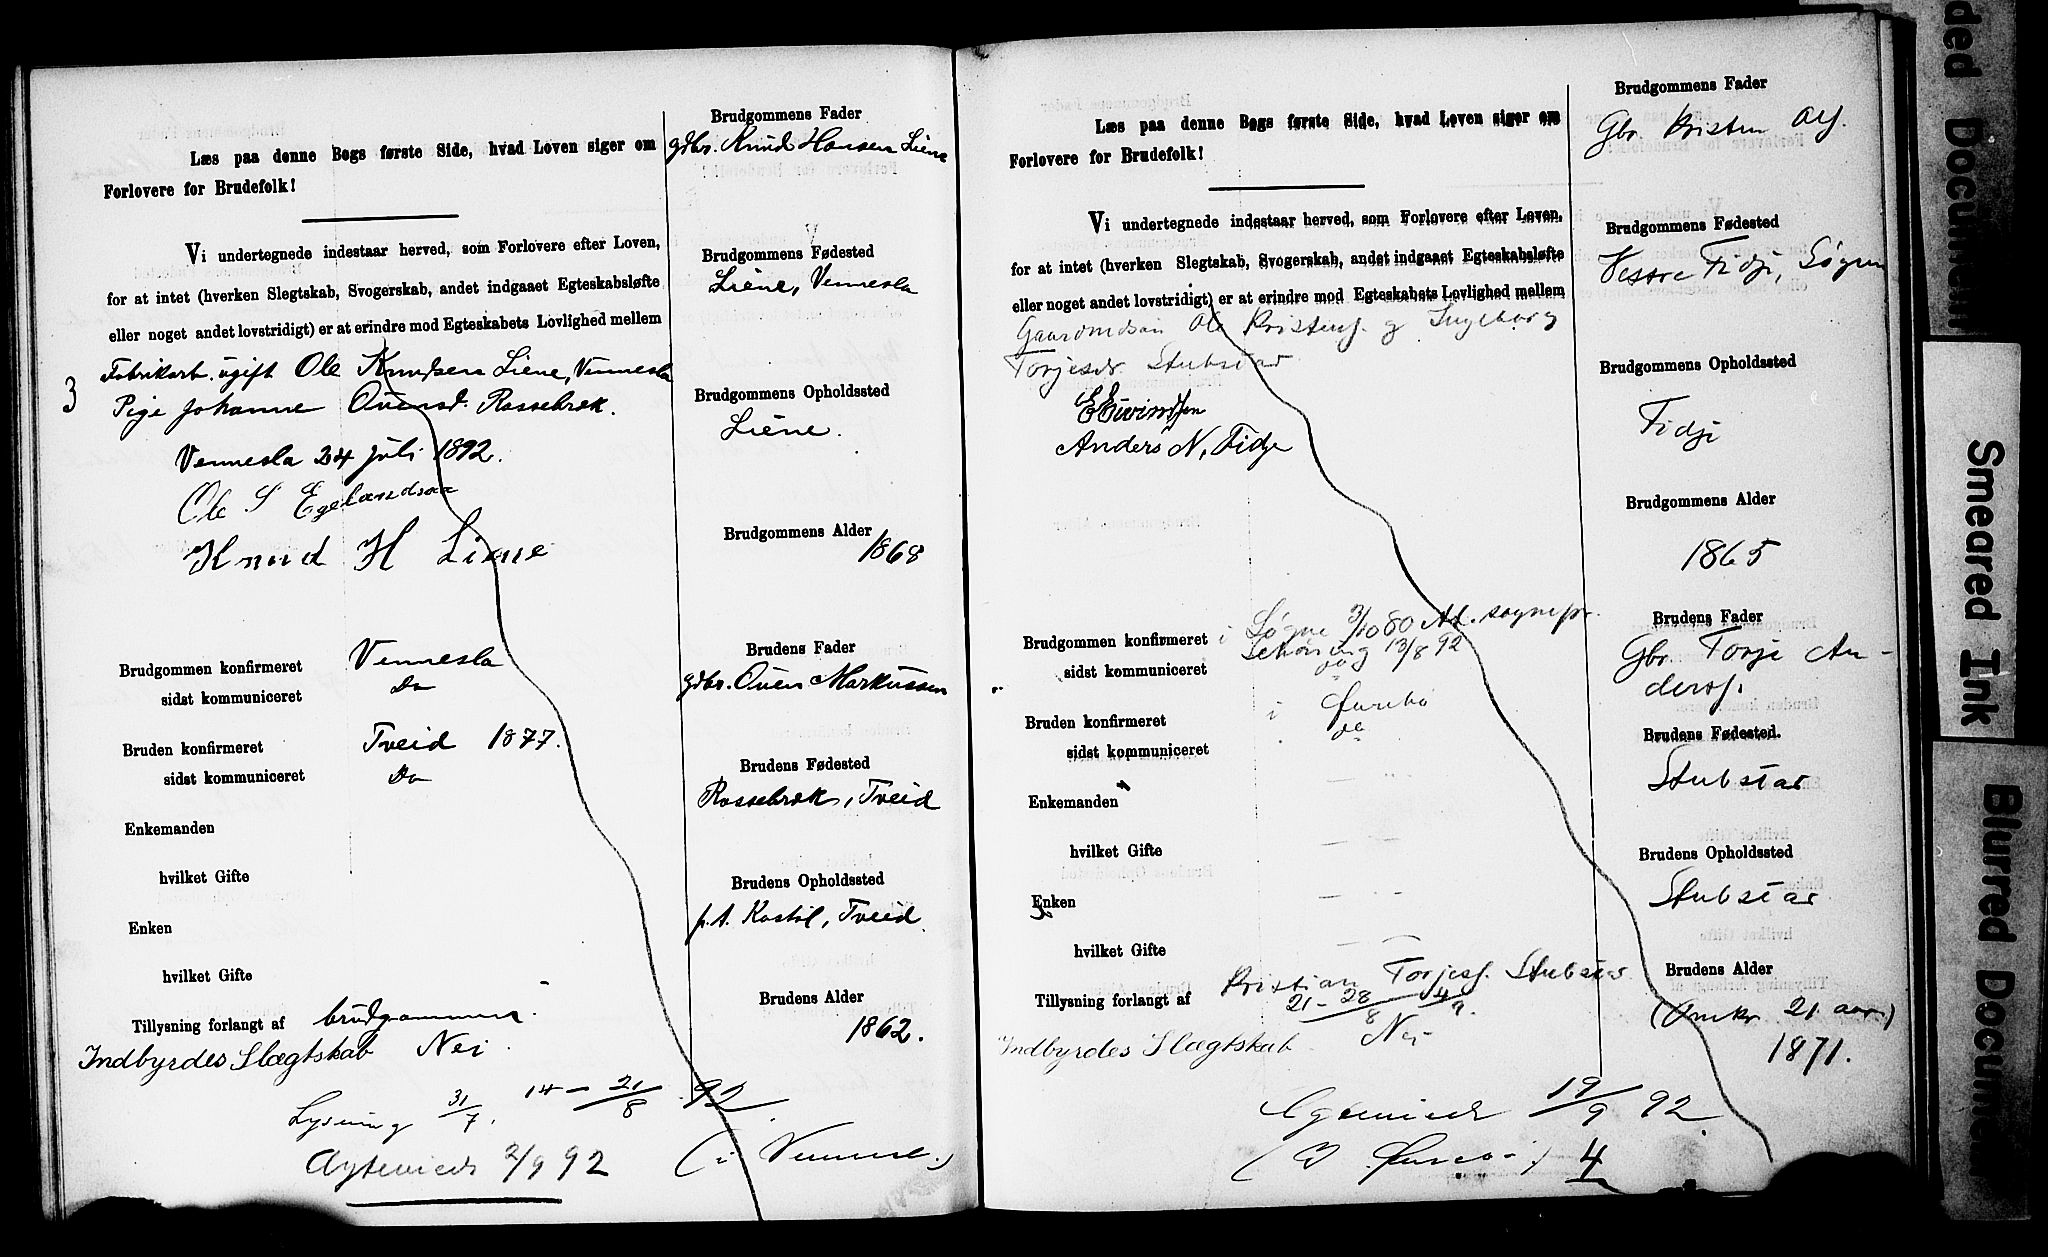 Læs paa denne Bogs første Side, hvad Loven siger om
Forlovere for Brudefolk!
Vi undertegnede indestaar herved, som Forlovere efter Loven,
for at intet (hverken Slegtskab, Svogerskab, andet indgaaet Egteskabsløfte
eller noget andet lovstridigt) er at erindre mod Egteskabets Lovlighed mellem
3 Fabrikarb. ugift Ole Knudsen Liene, Vennesla
Pige Johanne Ovensd. Rossebræk.
Vennesla 24 Juli 1892.
Ole S Egelandsaa
Knud H Liene
Brudgommen konfirmeret Vennesla
sidst kommuniceret Do
Bruden konfirmeret Tveid 1877.
sidst kommuniceret Do
Enkemanden
hvilket Gifte
Enken
hvilket Gifte
Tillysning forlangt af brudgommen.
Indbyrdes Slægtskab Nei.
Lysning 31/7. 14 – 21/8 92.
Ægtevieds 2/9 92 (i Vennesl.)
Brudgommens Fader
gdbr. Knud Hansen Liene
Brudgommens Fødested
Liene, Vennesla
Brudgommens Opholdssted
Liene.
Brudgommens Alder
1868
Brudens Fader
gdbr. Oven Markussen
Brudens Fødested
Rossebræk, Tveid
Brudens Opholdssted
p.t. Kostøl, Tveid.
Brudens Alder
1862.
Læs paa denne Bogs første Side, hvad Loven siger om
Forlovere for Brudefolk!
Vi undertegnede indestaar herved, som Forlovere efter Loven,
for at intet (hverken Slegtskab, Svogerskab, andet indgaaet Egteskabsløfte
eller noget andet lovstridigt) er at erindre mod Egteskabets Lovlighed mellem
Gaardmdsøn Ole Kristens. og Ingeborg
Torjesdr. Stubstad
E Eivindsen
Anders N. Fidje
Brudgommen konfirmeret i Søgne 3/10 80 Att. sognepr.
sidst kommuniceret do 13/8 92
Bruden konfirmeret i Øvrebø
sidst kommuniceret do
Enkemanden
hvilket Gifte
Enken
hvilket Gifte
Tillysning forlangt af Kristian Torjesf. Stubstad
21 – 28/8 – 4/9.
Indbyrdes Slægtskab. Nei
Ægtevieds 19/9 92.
(I Øvrebø) 4
Brudgommens Fader
Gbr. Kristen Olf.
Brudgommens Fødested
Vestre Fidje, Søgne
Brudgommens Opholdssted
Fidje
Brudgommens Alder
1865
Brudens Fader
Gbr. Torje An-
dersf.
Brudens Fødested.
Stubstad
Brudens Opholdssted
Stubstad
Brudens Alder
(Omkr 21 aar)
1871.
ded Documen
Smeared Ink
Blurred Documen